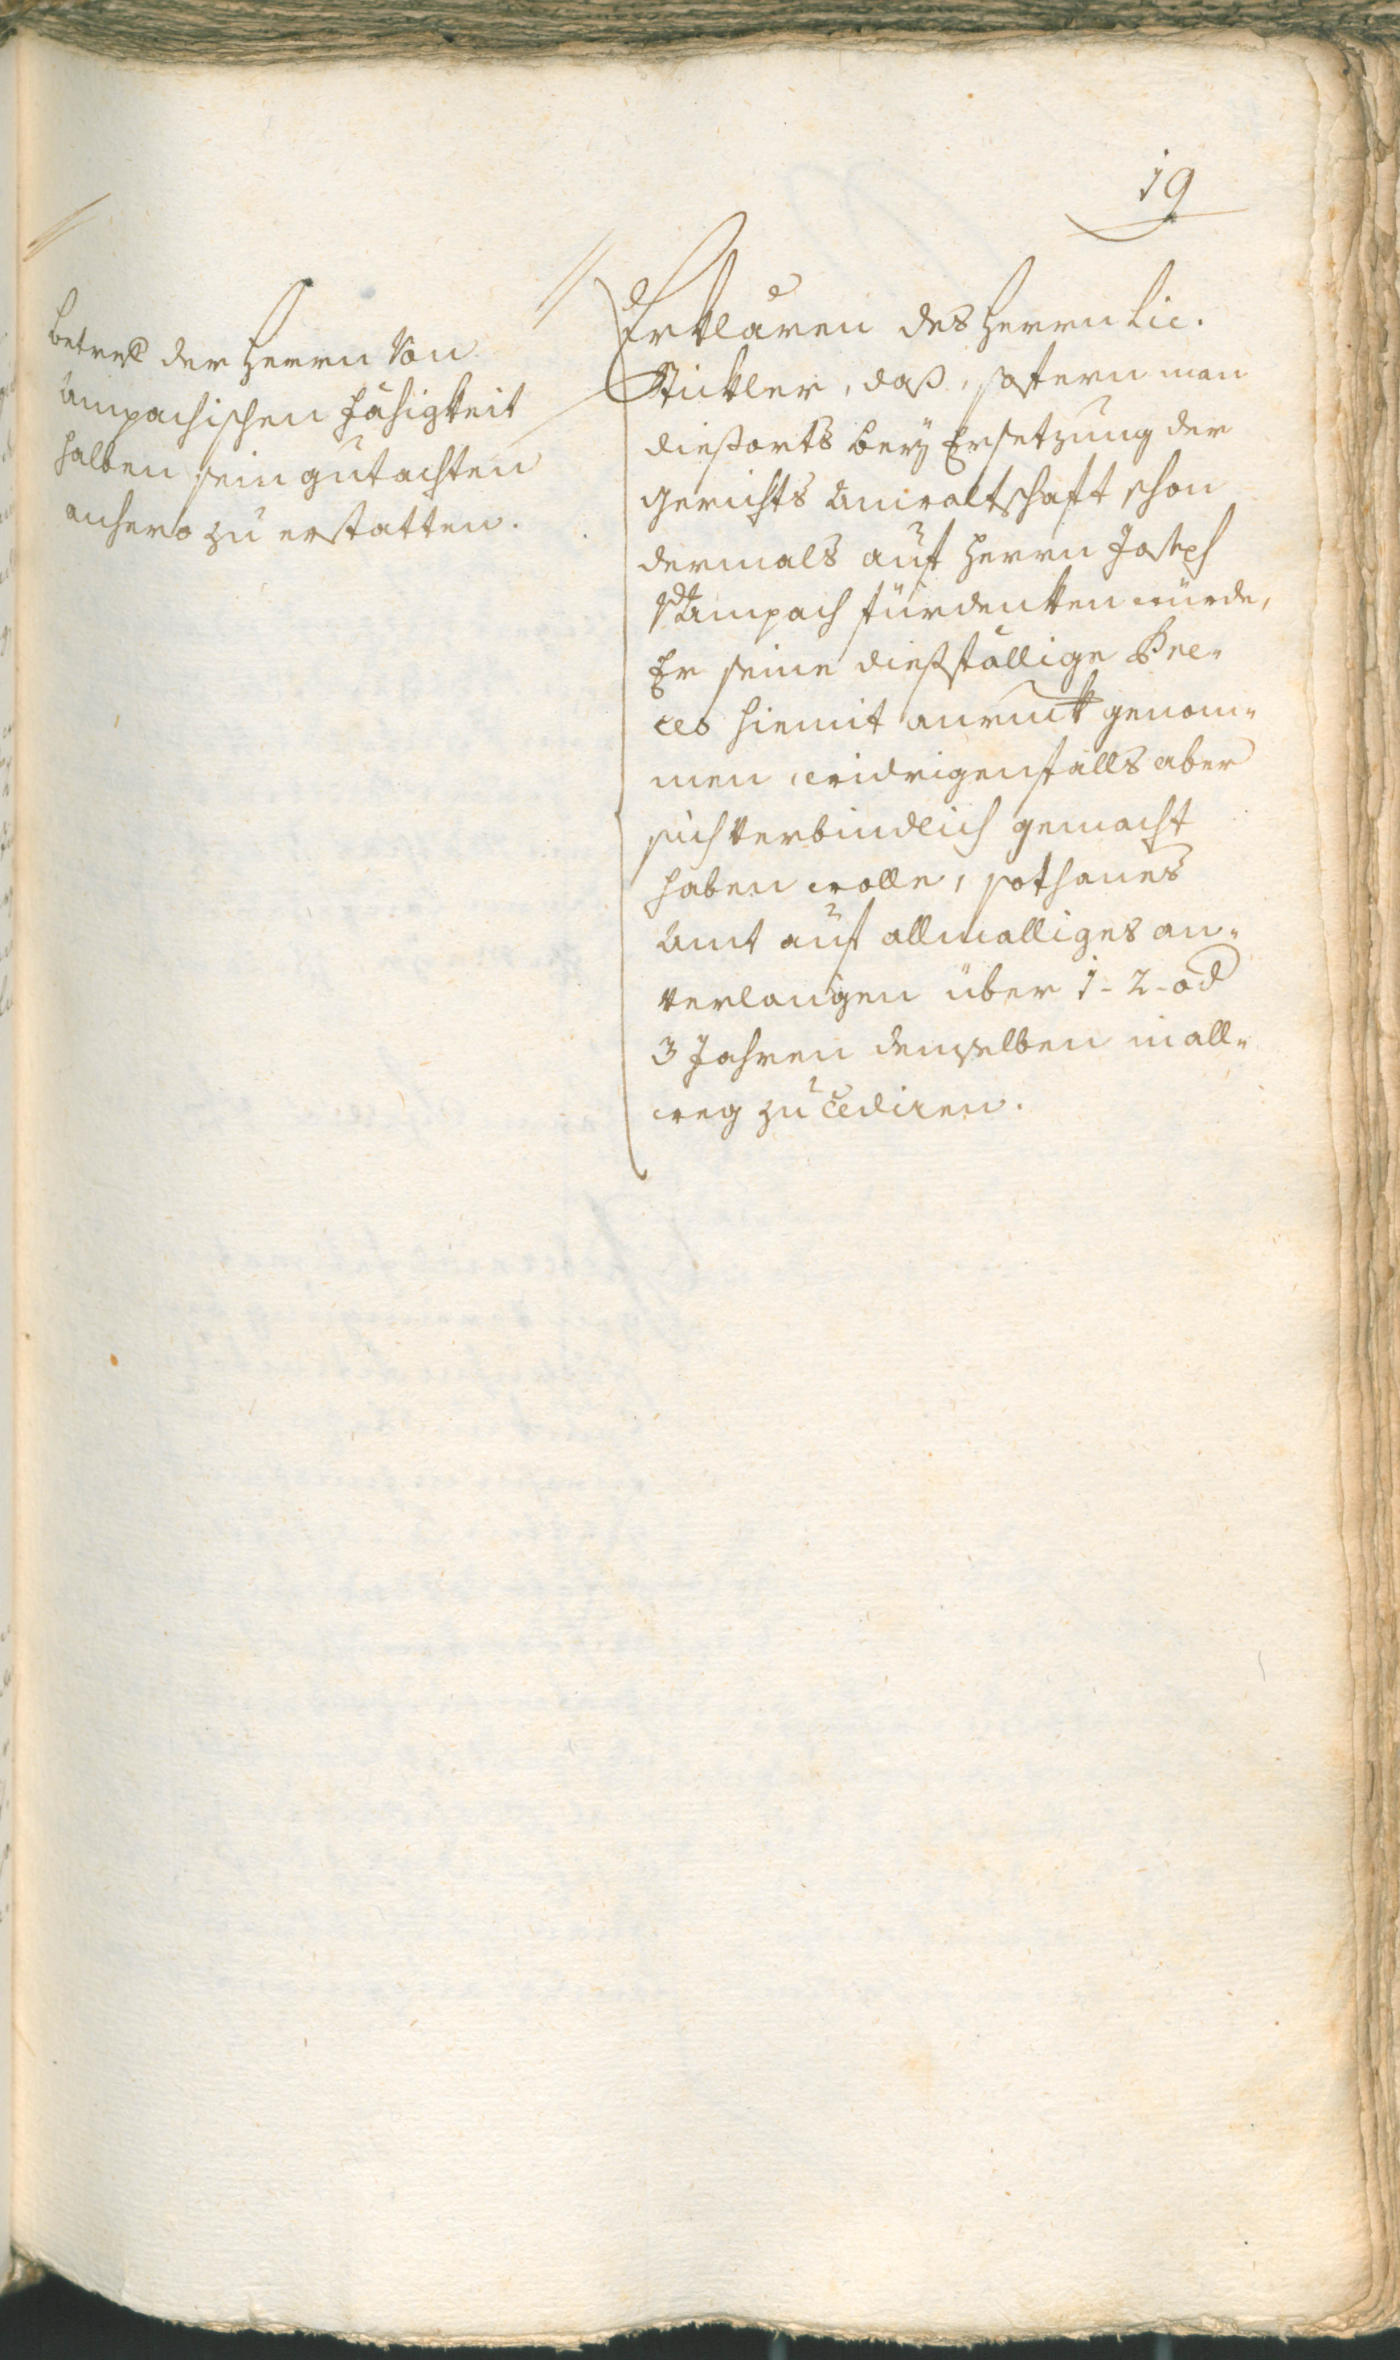 19
betref der Herrn Von
Ampachischen Fähigkeit
halben sein gutachten
anhero zu erstatten.
Erklären des Herrn Lic.
Stickler, daß, sofern man
diesorts bey Ersetzung der
Gerichts Anwaltschaft schon
dermals auf Herrn Joseph
V Ampach fürdenken würde,
Er seine dießfällige Pre„
ces hiemit zuruck genom„
men, widrigenfalls aber
sich verbindlich gemacht
haben wolle, sothanes
Amt auf allmalliges an„
verlangen über 1 - 2 - od
3 Jahren demselben in all„
weg zu cediren.